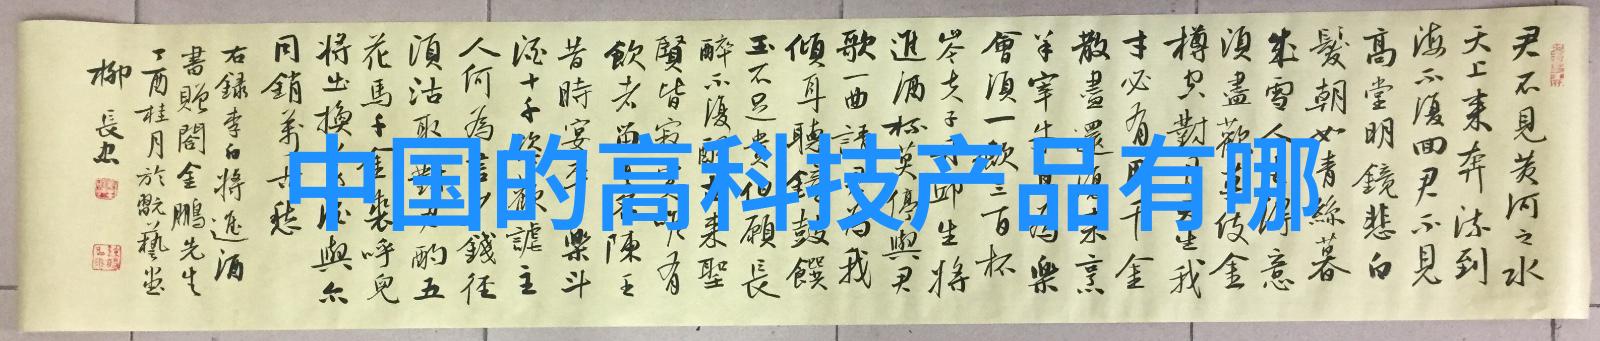 君不見黃河之水
天上来奔流到
海不復回君不見
高堂明鏡悲白
髮朝如青絲暮
成雪人生得意
須盡歡莫使金
樽空對月天生我
才必有用千金
散盡還復来烹
羊宰牛且為樂
會須一飲三百杯
岑夫子丹邱生將
進酒杯莫停與君
歌一曲請君為我
傾耳聽鐘鼓饌
玉不足貴但願長
醉不復醒古来聖
賢皆寂寞唯有
飲者留其名陳王
昔時宴平樂斗
酒十千恣歡謔主
人何為言少錢徑
須沽取對君酌五
花馬千金裘呼兒
將出換美酒與尔
同銷萬古愁
右録李白將進酒
書贈閣金鵬先生
丁酉桂月於翫藝堂
柳長忠
中国的高科技产品有哪